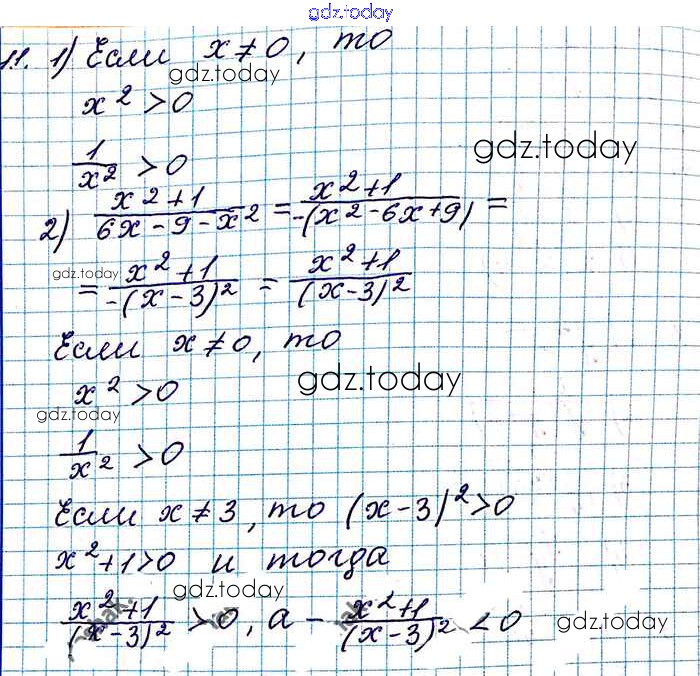 gdz.today
11. 1) Если x ≠ 0, то
gdz.today
x² > 0
gdz.today
1/x² > 0
2) (x²+1)/(6x-9-x²) = (x²+1)/(-(x²-6x+9)) =
gdz.today
= (x²+1)/(-(x-3)²) = (x²+1)/((x-3)²)
Если x ≠ 0, то
gdz.today
x² > 0
gdz.today
1/x² > 0
Если x ≠ 3, то (x-3)² > 0
x²+1>0 и тогда
gdz.today
(x²+1)/((x-3)²) > 0, а - (x²+1)/((x-3)²) < 0
gdz.today